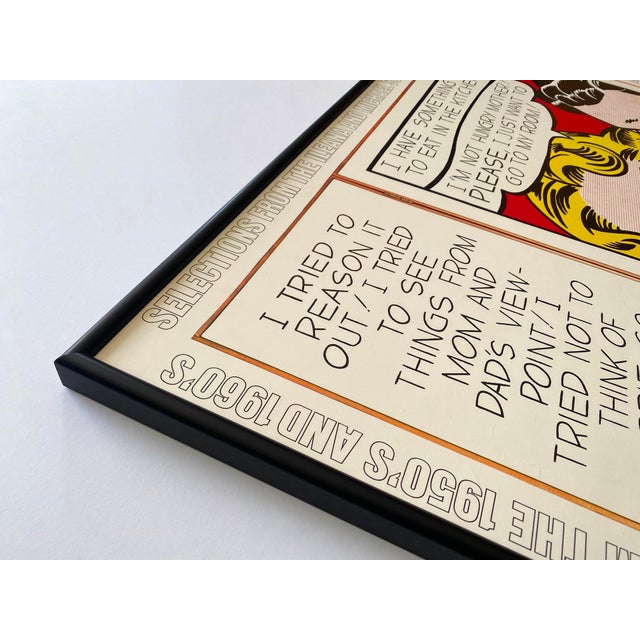 I HAVE SOMETHING
TO EAT IN THE KITCHEN
I'M NOT HUNGRY MOTHER!
PLEASE I JUST WANT TO
GO TO MY ROOM!
I TRIED TO
REASON IT
OUT! I TRIED
TO SEE
THINGS FROM
MOM AND
DAD'S VIEW-
POINT! I
TRIED NOT TO
THINK OF
SELECTIONS FROM THE
THE 1950'S AND 1960'S